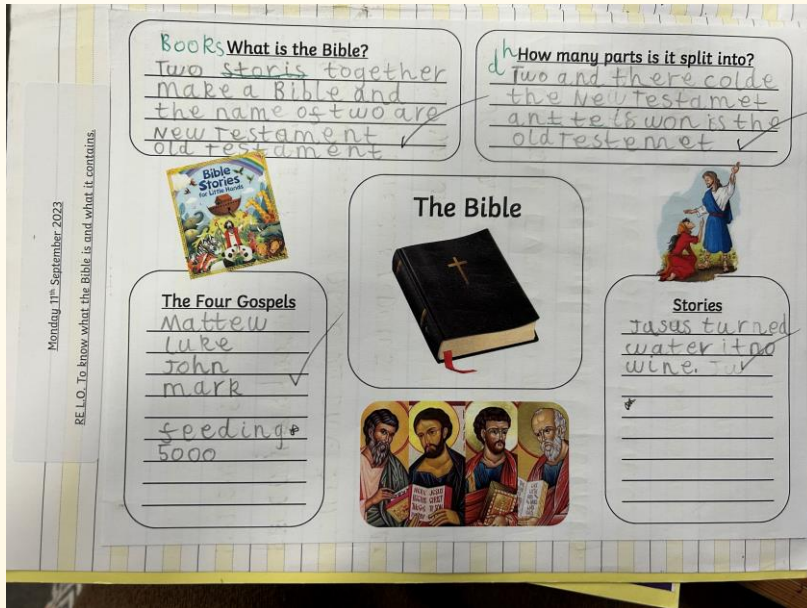 Monday 11th September 2023
RE L.O. To know what the Bible is and what it contains.
Books What is the Bible?
Two storis together
make a Bible and
the name of two are
New Testament
old Testament
dh How many parts is it split into?
Two and there colde
the New Testamet
ant te is won is the
old Testemet
Bible
Stories
for Little Hands
The Bible
The Four Gospels
Mattew
Luke
John
mark
feeding
5000
Stories
Jasus turned
water itno
wine.